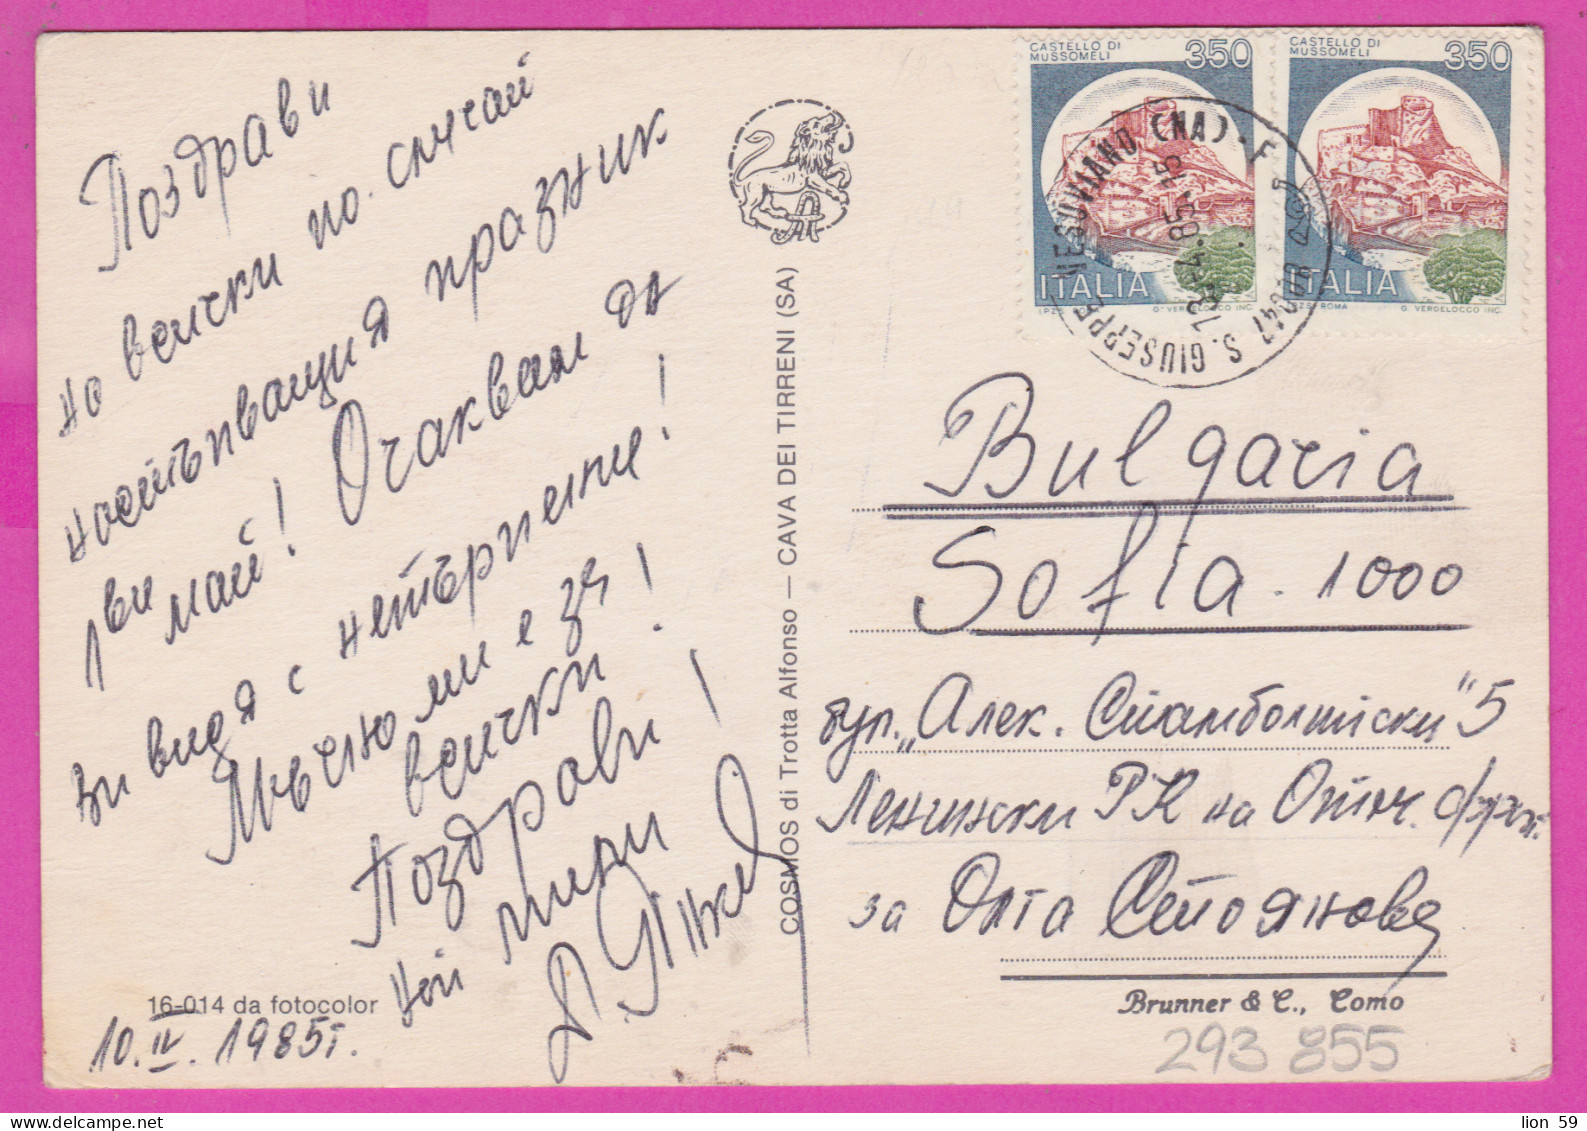 Поздрави
на всички по случай
настъпващия празник
1ви май! Очаквам да
ви видя с нетърпение!
Мъчно ми е за
всички!
Поздрави!
10.IV.1985г.
16-014 da fotocolor
COSMOS di Trotta Alfonso — CAVA DEI TIRRENI (SA)
CASTELLO DI MUSSOMELI 350
ITALIA
CASTELLO DI MUSSOMELI 350
ITALIA
I.P.Z.S. ROMA G. VERDELOCCO INC.
S. GIUSEPPE VESUVIANO (NA)
Bulgaria
Sofia. 1000
бул. „Алек. Стамболийски" 5
Ленински РК на Отеч. фронт.
за Олга Стоянова
Brunner & C., Como
293 855
lion 59